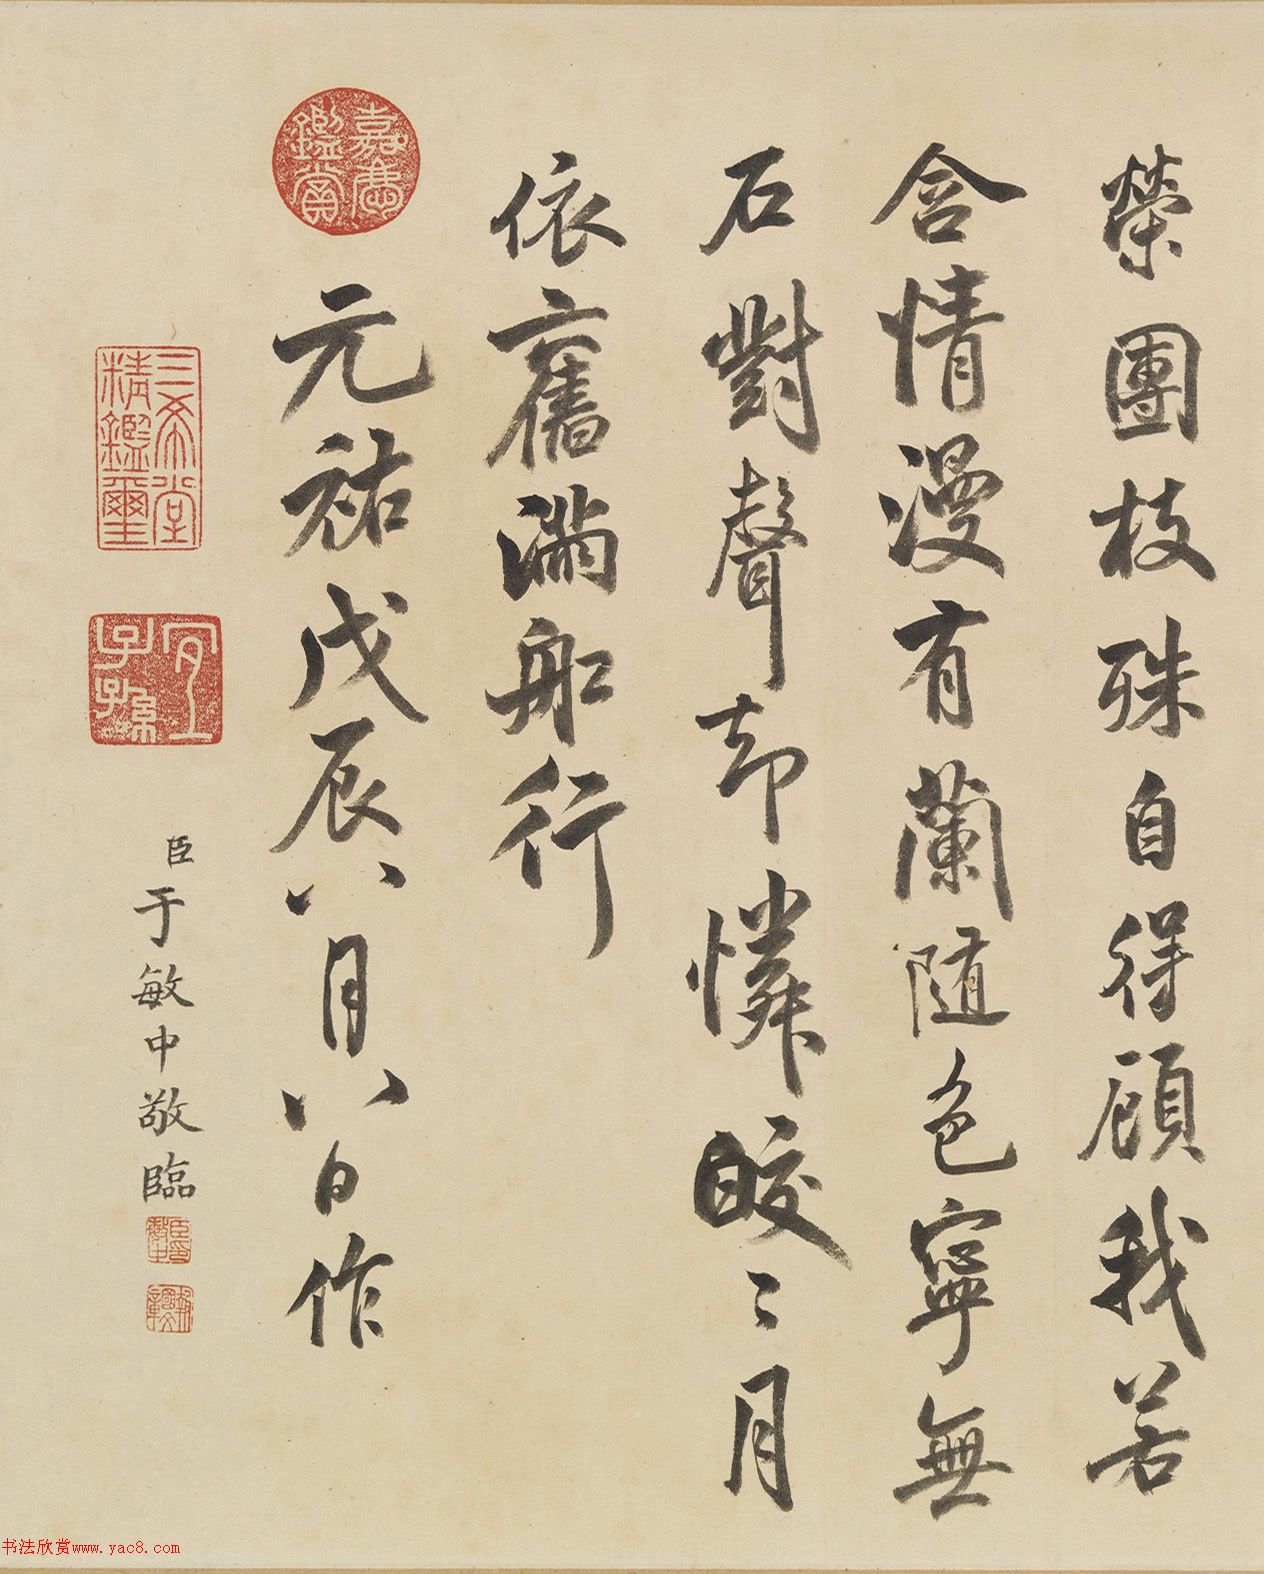 榮團枝殊自得顧我若
含情漫有蘭隨色寧無
石對聲却憐皎〻月
依舊滿船行
元祐戊辰八月八日作
嘉慶鑑賞
三希堂精鑑璽
宜子孫
臣于敏中敬臨
书法欣赏www.yac8.com